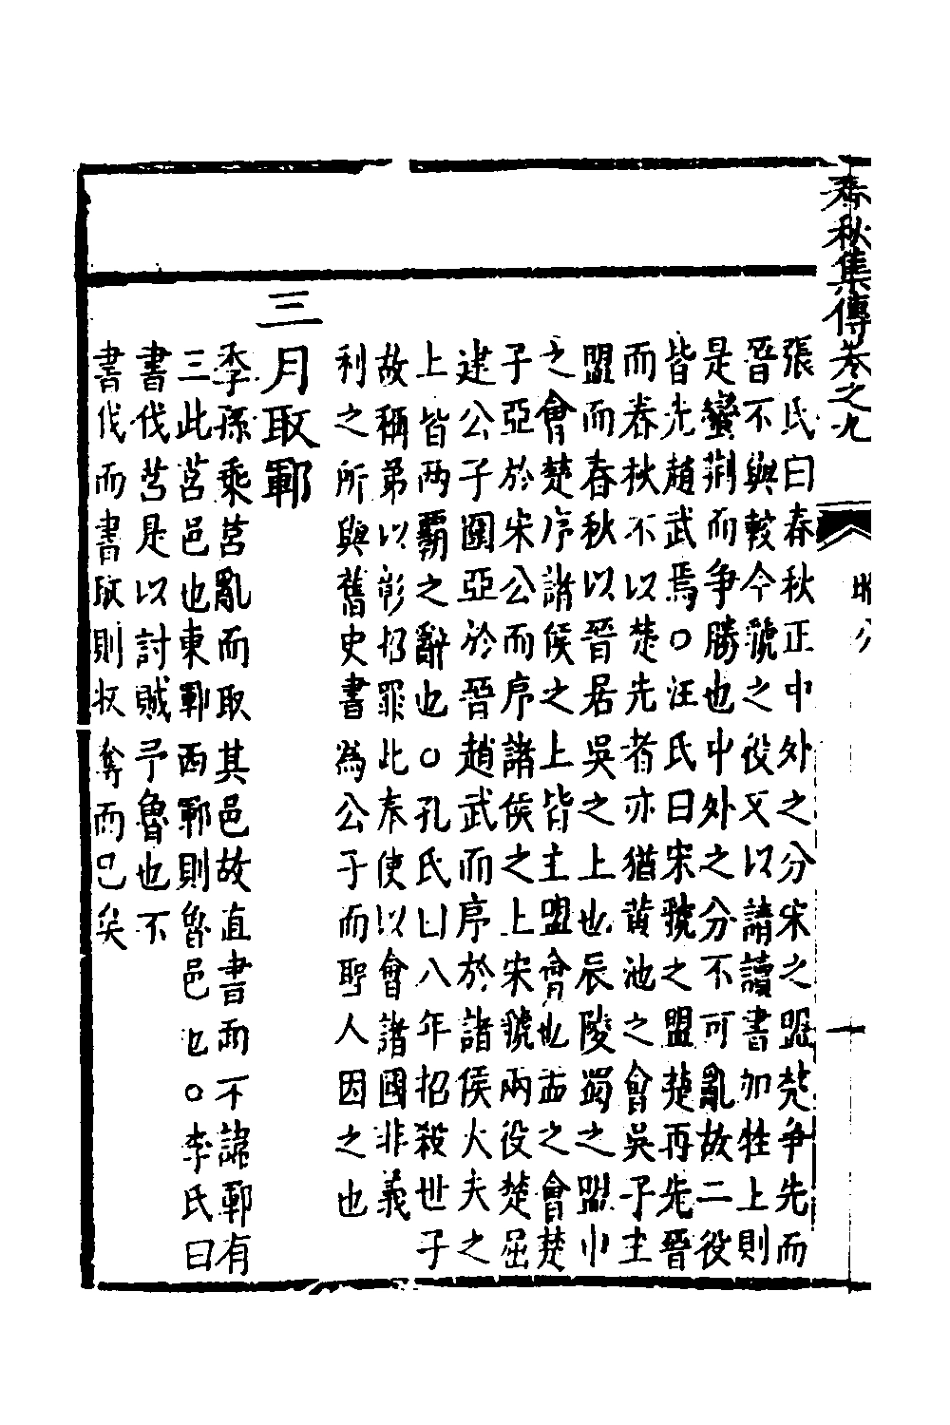 春秋集傳卷之九
張氏曰春秋正中外之分宋之盟楚争先而
晉不與較今虢之役又以請讀書加牲上則
是蠻荆而争勝也中外之分不可亂故二役
皆先趙武焉○汪氏曰宋虢之盟楚再先晉
而春秋不以楚先者亦猶黄池之會吳子主
盟而春秋以晉居吳之上也辰陵蜀之盟小
之會楚序諸侯之上皆主盟會也盂之會楚
子亞於宋公而序諸侯之上宋虢兩役楚屈
建公子圍亞於晉趙武而序於諸侯大夫之
上皆两覇之辭也○孔氏曰八年招殺世子
故稱弟以彰招罪此奉使以會諸國非義
利之所與舊史書為公子而聖人因之也
三月取鄆
季孫乘莒亂而取其邑故直書而不諱鄆有
三此莒邑也東鄆西鄆則魯邑也○李氏曰
書伐莒是以討賊予魯也不
書伐而書取則攻奪而已矣